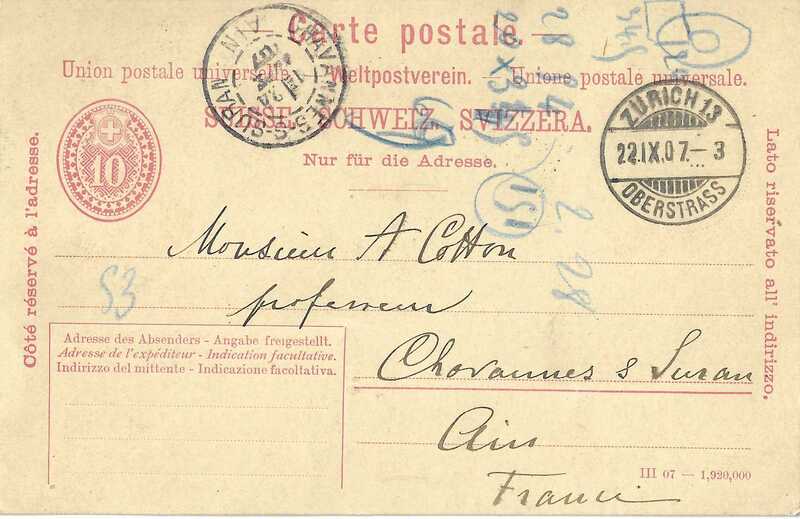 Carte postale.
Union postale universelle. — Weltpostverein. — Unione postale universale.
SUISSE. SCHWEIZ. SVIZZERA.
Nur für die Adresse.
Côté réservé à l'adresse.
Lato riservato all' indirizzo.
10
CHAVANNES-S-SURAN
AIN
ZÜRICH 13
22.IX.07.–3
OBERSTRASS
151
2.28
53
Monsieur A Cotton
professeur
Chavannes s Suran
Ain
France
Adresse des Absenders - Angabe freigestellt.
Adresse de l'expéditeur - Indication facultative.
Indirizzo del mittente - Indicazione facoltativa.
III 07 — 1,920,000